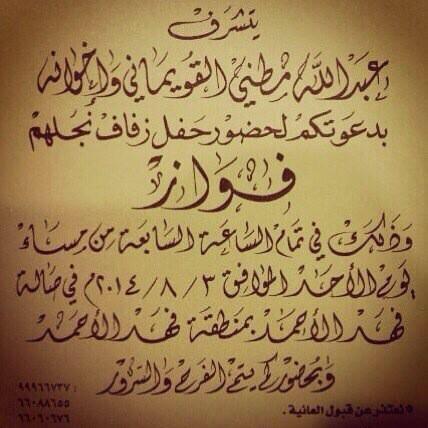 يتشرف
عبدالله مطني القويماني وإخوانه
بدعوتكم لحضور حفل زفاف نجلهم
فواز
وذلك في تمام الساعة السابعة من مساء
يوم الأحد الموافق ٢٠١٤/٨/٣م في صالة
فهد الأحمد بمنطقة فهد الأحمد
وبحضوركم يتم الفرح والسرور
٩٩٩٦٦٧٣٧ :
٦٦٠٨٨٦٥٥
٦٦٠٦٠٦٧٦
* نعتذر عن قبول العانية .